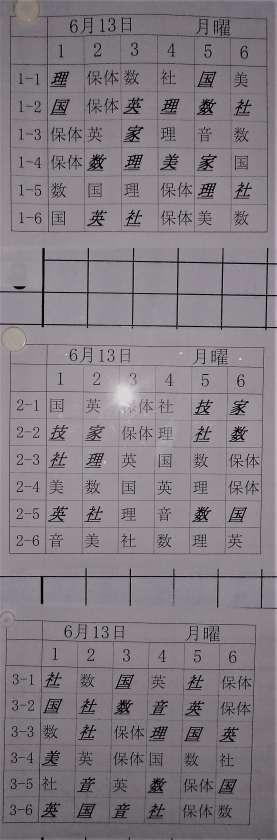 6月13日 月曜
1 2 3 4 5 6
1-1 理 保体 数 社 国 美
1-2 国 保体 英 理 数 社
1-3 保体 英 家 理 音 数
1-4 保体 数 理 美 家 国
1-5 数 国 理 保体 理 社
1-6 国 英 社 保体 美 数
6月13日 月曜
1 2 3 4 5 6
2-1 国 英 保体 社 技 家
2-2 技 家 保体 理 社 数
2-3 社 理 英 国 数 保体
2-4 美 数 国 英 理 保体
2-5 英 社 理 音 数 国
2-6 音 美 社 数 理 英
6月13日 月曜
1 2 3 4 5 6
3-1 社 数 国 英 社 保体
3-2 国 社 数 音 英 保体
3-3 数 社 保体 理 国 英
3-4 美 英 保体 国 数 社
3-5 社 音 英 数 保体 国
3-6 英 国 音 社 保体 数